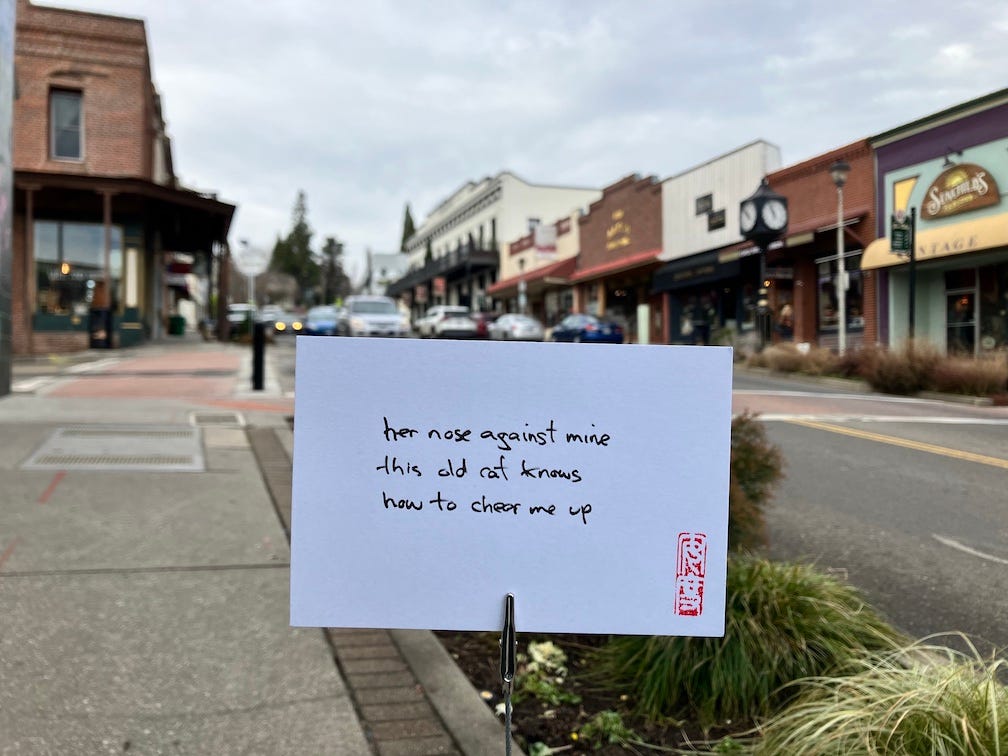 her nose against mine
this old cat knows
how to cheer me up
SUNCHILD'S
VINTAGE